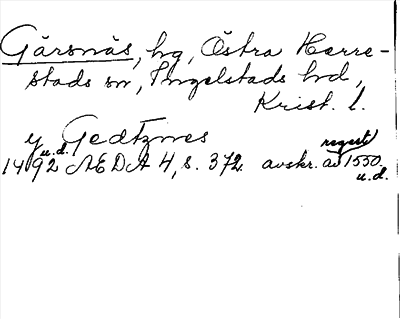 Gärsnäs, hg, Östra Herre-
stads sn, Ingelstads hd,
Krist. l.
y Gedtznes
1492 u.d. AEDA 4, s. 372. avskr. av regest 1550. u.d.